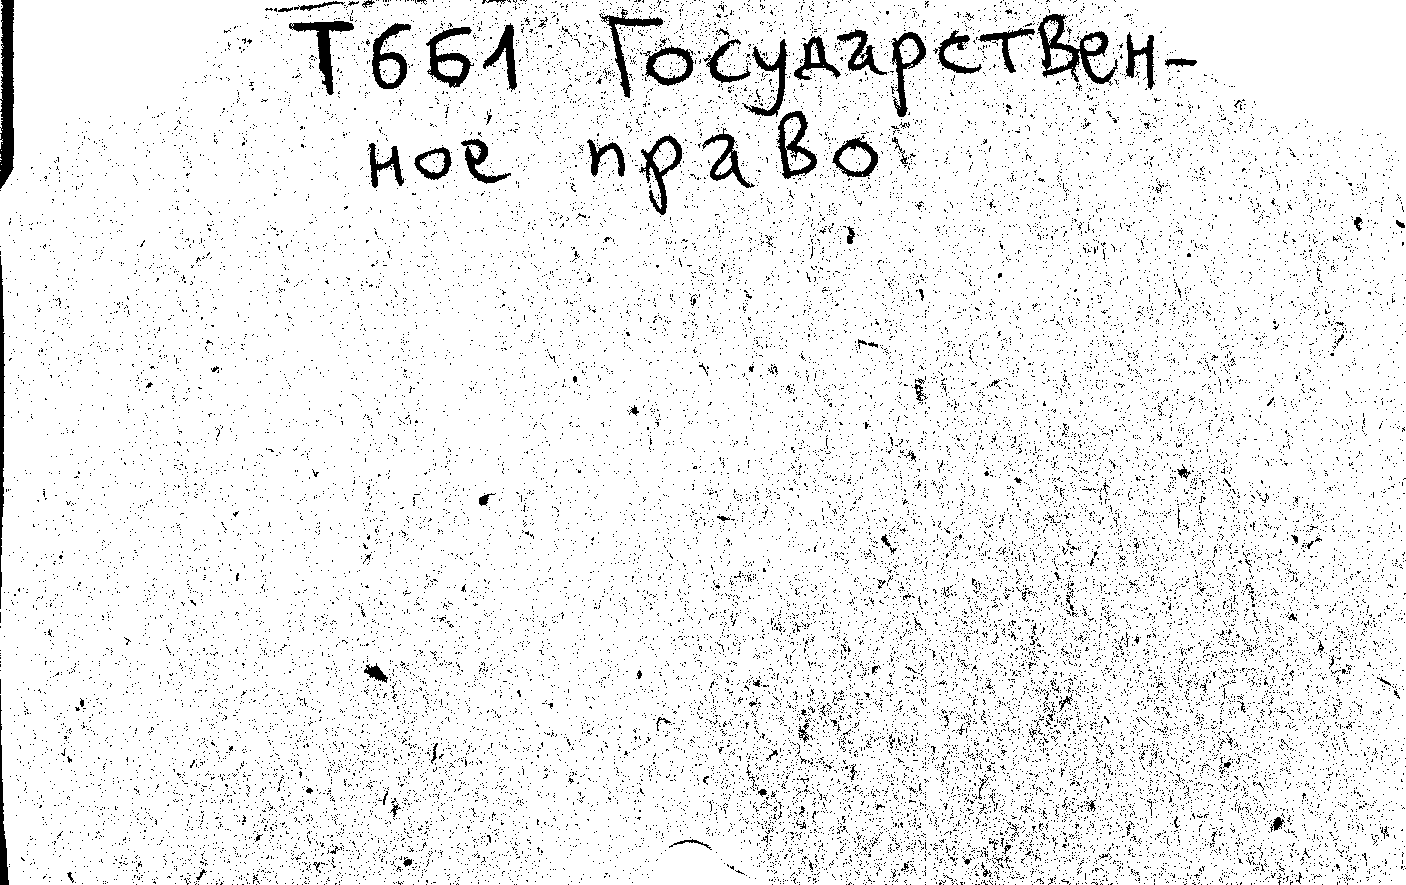 Т661 Государствен-
ное право